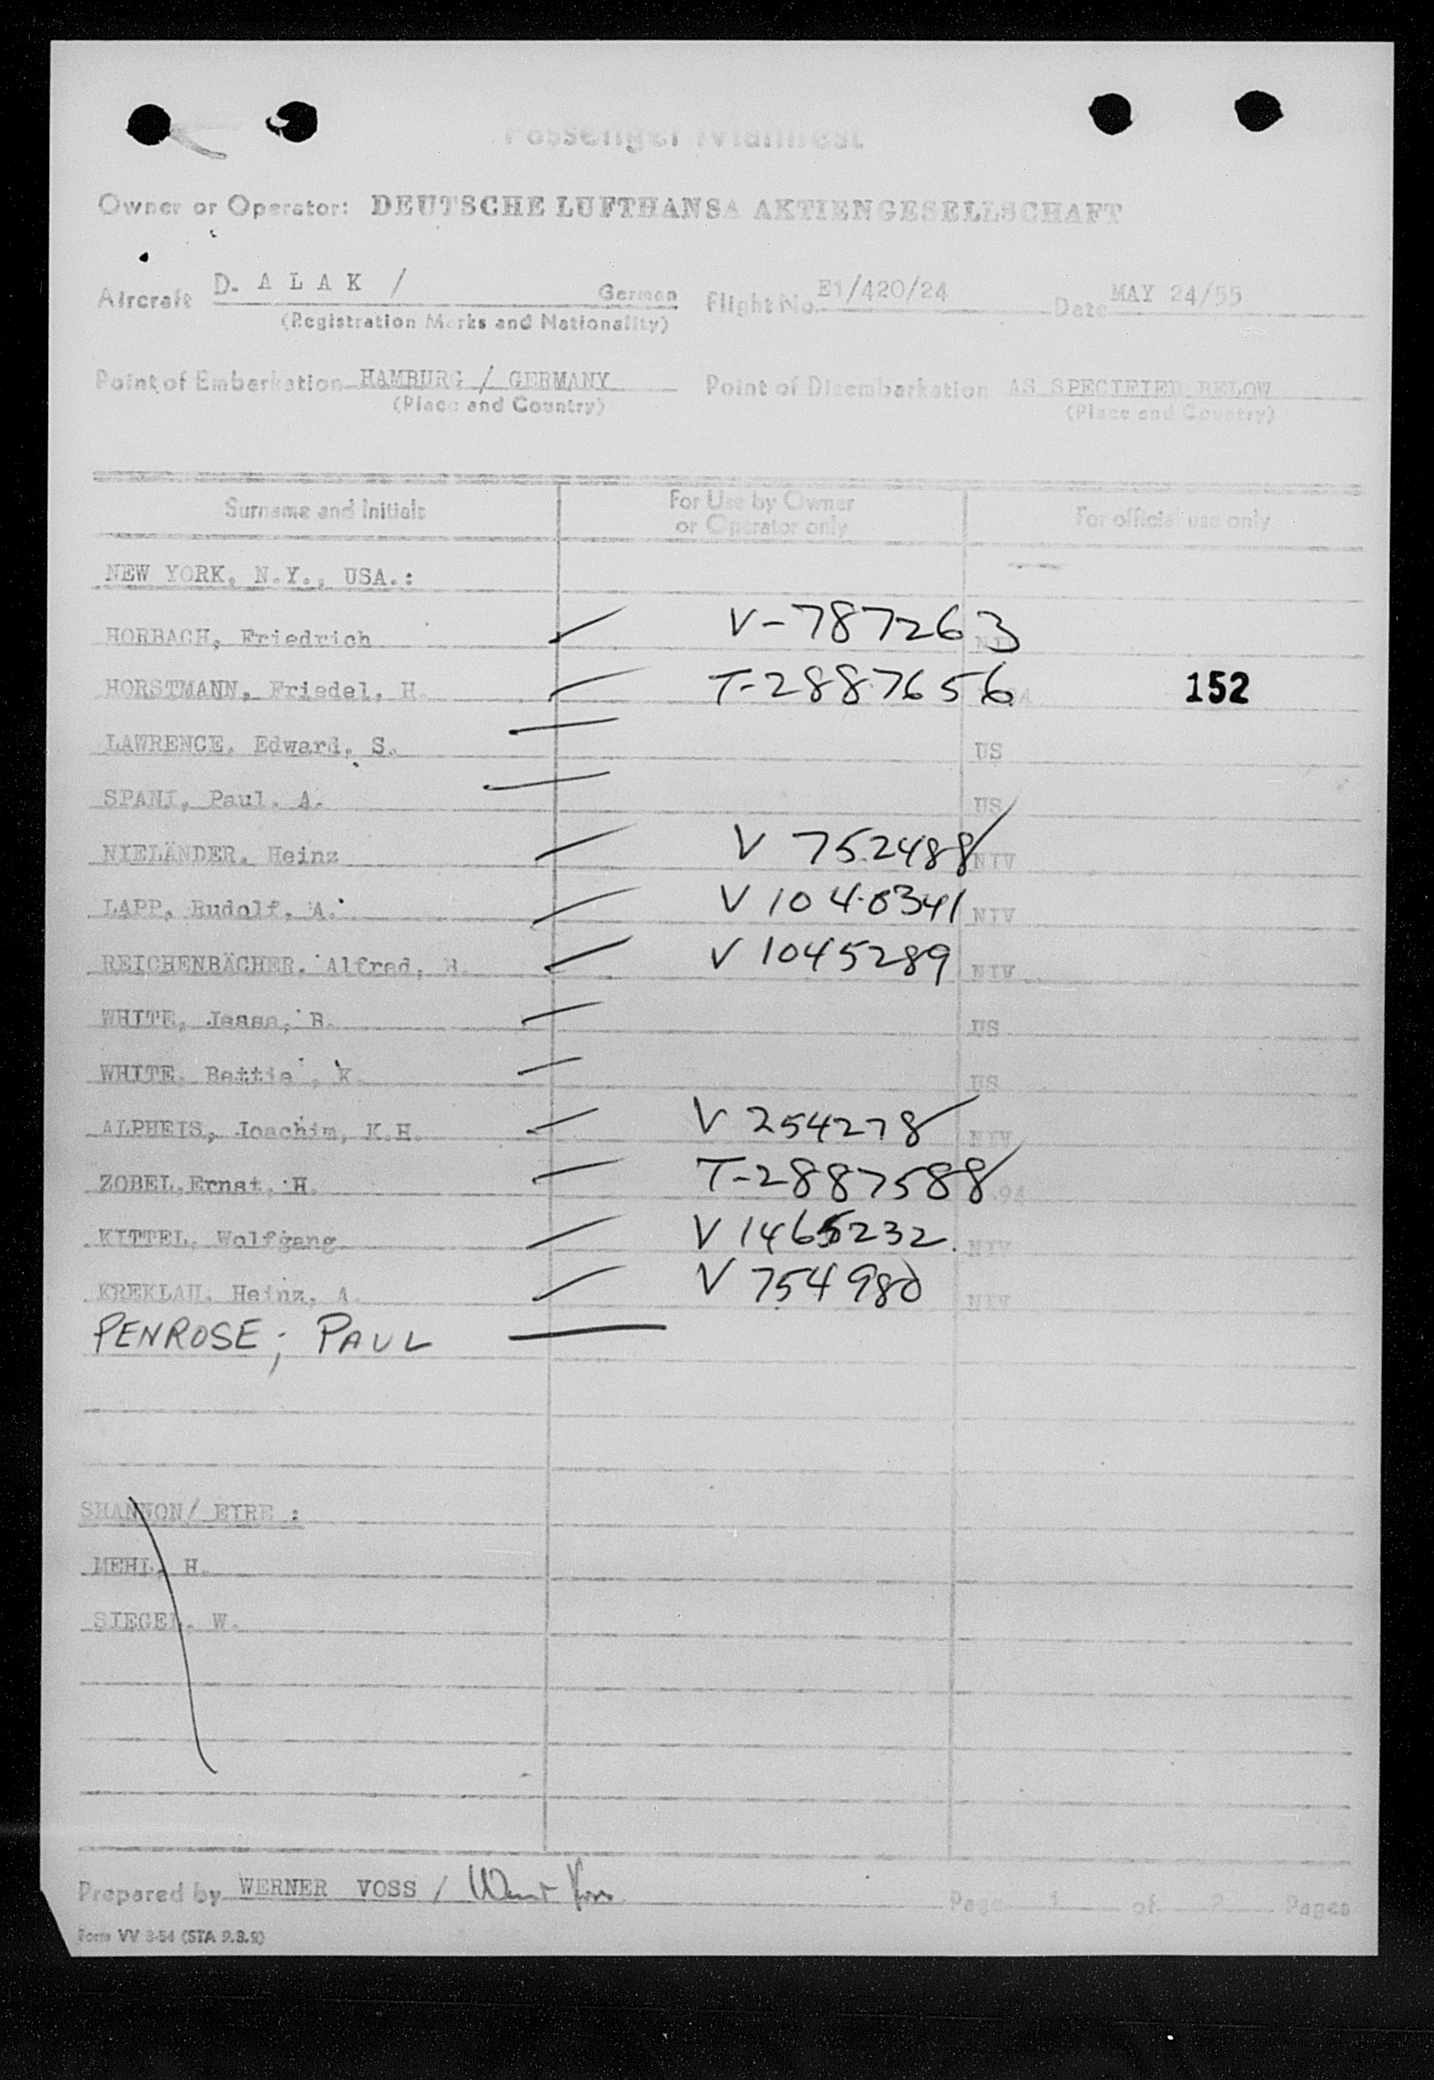 Passenger Manifest
Owner or Operator: DEUTSCHE LUFTHANSA AKTIENGESELLSCHAFT
Aircraft D. A L A K / German Flight No. E1/420/24 Date MAY 24/55
(Registration Marks and Nationality)
Point of Embarkation HAMBURG / GERMANY Point of Disembarkation AS SPECIFIED BELOW
(Place and Country) (Place and Country)
Surname and Initials For Use by Owner or Operator only For official use only
NEW YORK, N.Y., USA.:
HORBACH, Friedrich V-787263 NIV
HORSTMANN, Friedel, H. T-2887656 152
LAWRENCE, Edward, S. US
SPANI, Paul. A. US
NIELÄNDER, Heinz V 752488 NIV
LAPP, Rudolf, A. V 1040341 NIV
REICHENBÄCHER, Alfred, H. V 1045289 NIV
WHITE, Jesse, B. US
WHITE, Bettie, K. US
ALPHEIS, Joachim, K.H. V 254278 NIV
ZOBEL, Ernst, H. T-2887588
KITTEL, Wolfgang V 1465232 NIV
KREKLAU, Heinz, A. V 754980 NIV
PENROSE; PAUL
SHANNON/ EIRE :
MEHL, H.
SIEGEL, W.
Prepared by WERNER VOSS / Werner Voss Page 1 of 2 Pages
Form VV 3-54 (STA 9.3.2)